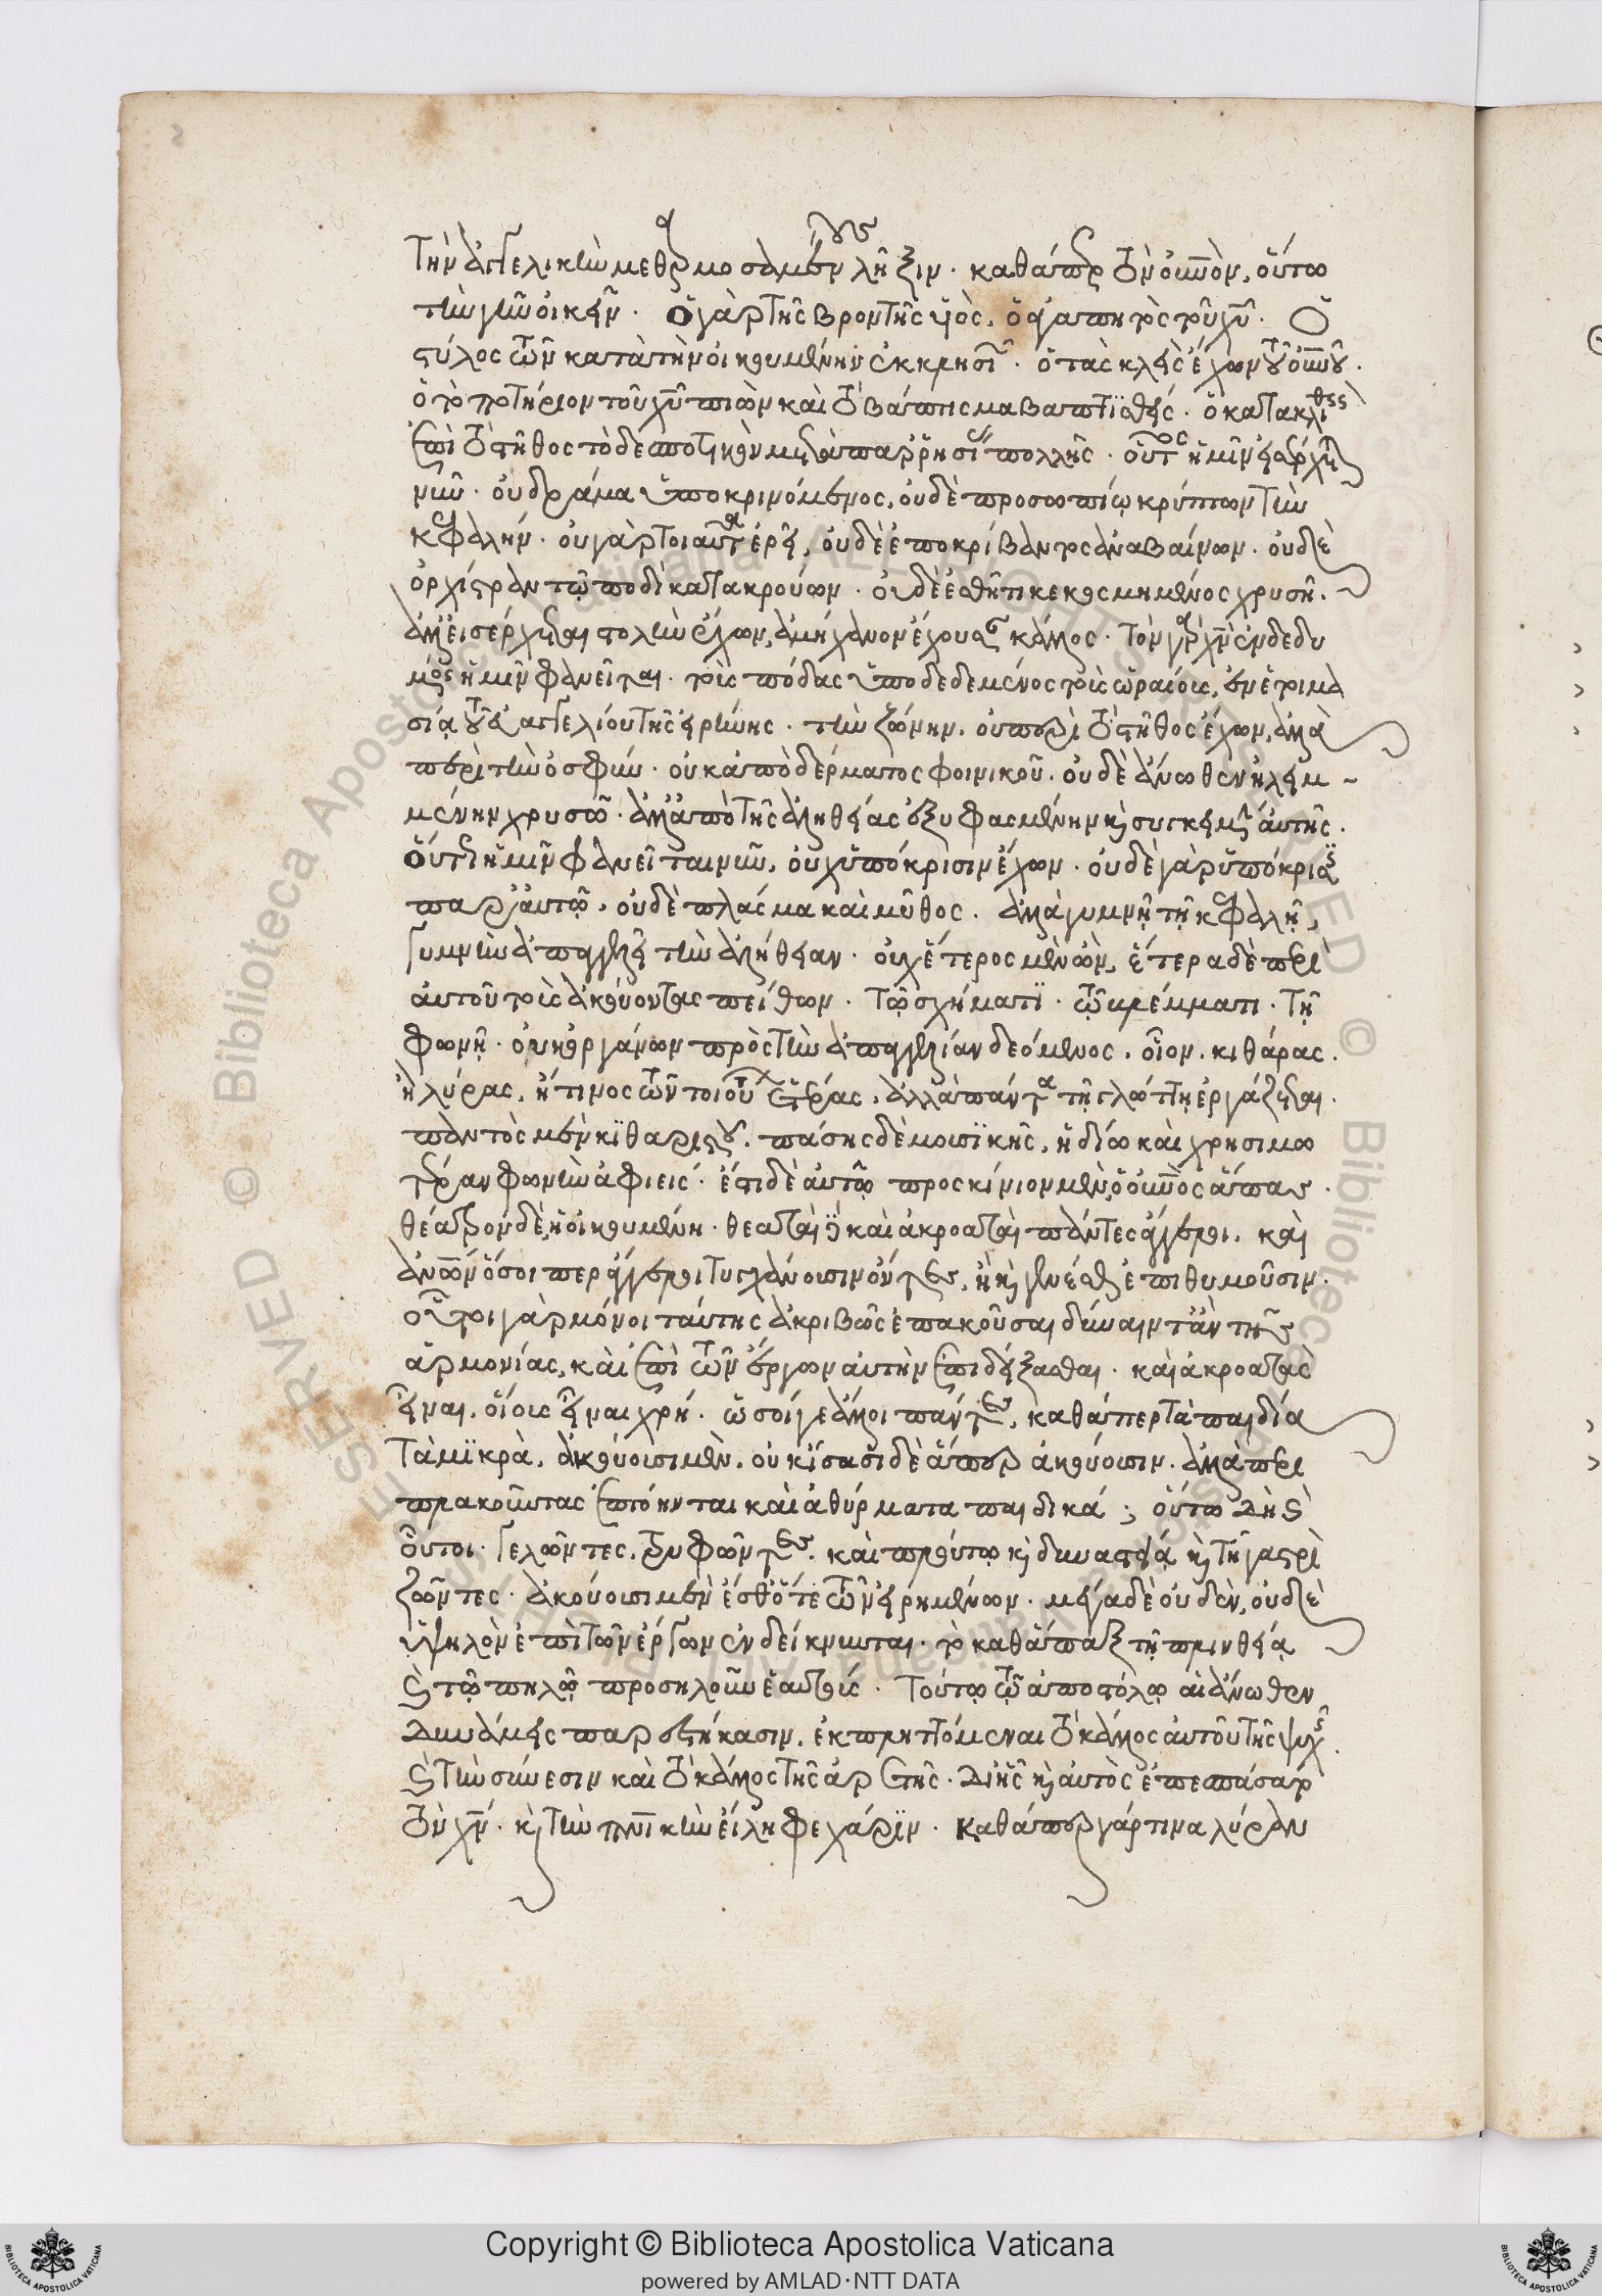 Τὴν ἀγγελικὴν μεθαρμοσάμενος λῆξιν. καθάπερ τὸν οὐνὸν, οὕτω
τὴν γῆν οἰκεῖν. Ὁ γὰρ τῆς βροντῆς υἱὸς. ὁ ἀγαπητὸς τοῦ χῦ. Ὁ
στύλος τῶν κατὰ τὴν οἰκουμένην ἐκκλησιῶν. ὁ τὰς κλεῖς ἔχων τοῦ οὐνοῦ.
ὁ τὸ ποτήριον τοῦ χῦ πιὼν καὶ τὸ βάπτισμα βαπτισθείς. ὁ κατακλιθεὶς
ἐπὶ τὸ στῆθος τὸ δεσποτικὸν μετὰ παρρησίας πολλῆς. οὗτος ἡμῖν εἰσέρχεται
νῦν. οὐ δρᾶμα ὑποκρινόμενος, οὐδὲ προσωπίῳ κρύπτων τὴν
κεφαλήν. οὐ γὰρ τοιαῦτα ἐρεῖ, οὐδὲ ἐπ ὀκρίβαντος ἀναβαίνων. οὐδὲ
ὀρχίστραν τῷ ποδὶ κατακρούων. οὐδὲ ἐσθῆτι κεκοσμημένος χρυσῆ.
ἀλλ' εἰσέρχεται στολὴν ἔχων, ἀμήχανον ἔχουσαν κάλλος. Τὸν γὰρ χν ἐνδεδυ
μένος ἡμῖν φανεῖται. τοὺς πόδας ὑποδεδεμένος τοὺς ὡραίους, ἐν ἑτοιμα
σίᾳ τοῦ εὐαγγελίου τῆς εἰρήνης. τὴν ζώνην. οὐ περὶ τὸ στῆθος ἔχων, ἀλλὰ
περὶ τὴν ὀσφύν. οὐκ ἀπὸ δέρματος φοινικοῦ. οὐδὲ ἄνωθεν ἠλειμ-
μένην χρυσῶ. ἀλλ' ἀπὸ τῆς ἀληθείας ἐξυφασμένην καὶ συγκειμένην αὐτῆς.
Οὗτος ἡμῖν φανεῖται νῦν, οὐχ ὑπόκρισιν ἔχων. οὐδὲ γὰρ ὑπόκρισις
παρ' αὐτῷ. οὐδὲ πλάσμα καὶ μῦθος. ἀλλὰ γυμνῇ τῇ κεφαλῇ,
γυμνὴν ἀπαγγελεῖ τὴν ἀλήθειαν. οὐχ ἕτερος μὲν ὢν, ἕτερα δὲ περὶ
αὐτοῦ τοὺς ἀκούοντας πείθων. Τῷ σχήματι. τῷ βλέμματι. τῇ
φωνῇ. οὐκ ὀργάνων πρὸς τὴν ἀπαγγελίαν δεόμενος. οἷον. κιθάρας.
ἢ λύρας, ἤ τινος τῶν τοιούτων ἑτέρας. ἀλλὰ πάντα τῇ γλώττῃ ἐργάζεται.
παντὸς μὲν κιθαριστοῦ. πάσης δὲ μουσικῆς, ἡδίω καὶ χρησιμω
τέραν φωνὴν ἀφιείς. ἔστι δὲ αὐτῷ προσκίνιον μὲν, ὁ οὐνὸς ἅπας.
θέατρον δὲ, ἡ οἰκουμένη. θεαταὶ δὲ καὶ ἀκροαταὶ πάντες ἄγγελοι. καὶ
ἀνῶν ὅσοι περ ἄγγελοι τυγχάνουσιν ὄντες, ἢ καὶ γενέσθαι ἐπιθυμοῦσιν.
οὗτοι γὰρ μόνοι ταύτης ἀκριβῶς ἐπακοῦσαι δύναιντ' ἂν τῆς
ἁρμονίας, καὶ ἐπὶ τῶν ἔργων αὐτὴν ἐπιδείξασθαι. καὶ ἀκροατὰς
εἶναι, οἵους εἶναι χρή. ὡς οἵ γε ἄλλοι πάντες, καθάπερ τὰ παιδία
Τὰ μικρὰ, ἀκούουσι μὲν, οὐκ ἴσασι δὲ ἅπερ ἀκούουσιν. ἀλλὰ περὶ
πλακοῦντας ἐπτόηνται καὶ ἀθύρματα παιδικά· οὕτω δὴ καὶ
οὗτοι. Γελῶντες, τρυφῶντες. καὶ πλούτῳ καὶ δυναστείᾳ καὶ τῇ γαστρὶ
ζῶντες. ἀκούουσι μὲν ἔσθ' ὅτε τῶν εἰρημένων. μέγα δὲ οὐδὲν, οὐδὲ
ὑψηλὸν ἐπὶ τῶν ἔργων ἐνδείκνυνται. τὸ καθάπαξ τῇ πλινθείᾳ
καὶ τῷ πηλῷ προσηλοῦν ἑαυτούς. Τούτῳ τῷ ἀποστόλῳ αἱ ἄνωθεν
Δυνάμεις παρεστήκασιν. ἐκπληττόμεναι τὸ κάλλος αὐτοῦ τῆς ψυχῆς.
καὶ τὴν σύνεσιν καὶ τὸ κάλλος τῆς ἀρετῆς. Δι' ἧς καὶ αὐτὸς ἐπεσπάσατο
τὸν χν. καὶ τὴν πνικὴν εἴληφε χάριν. καθάπερ γάρ τινα λύραν